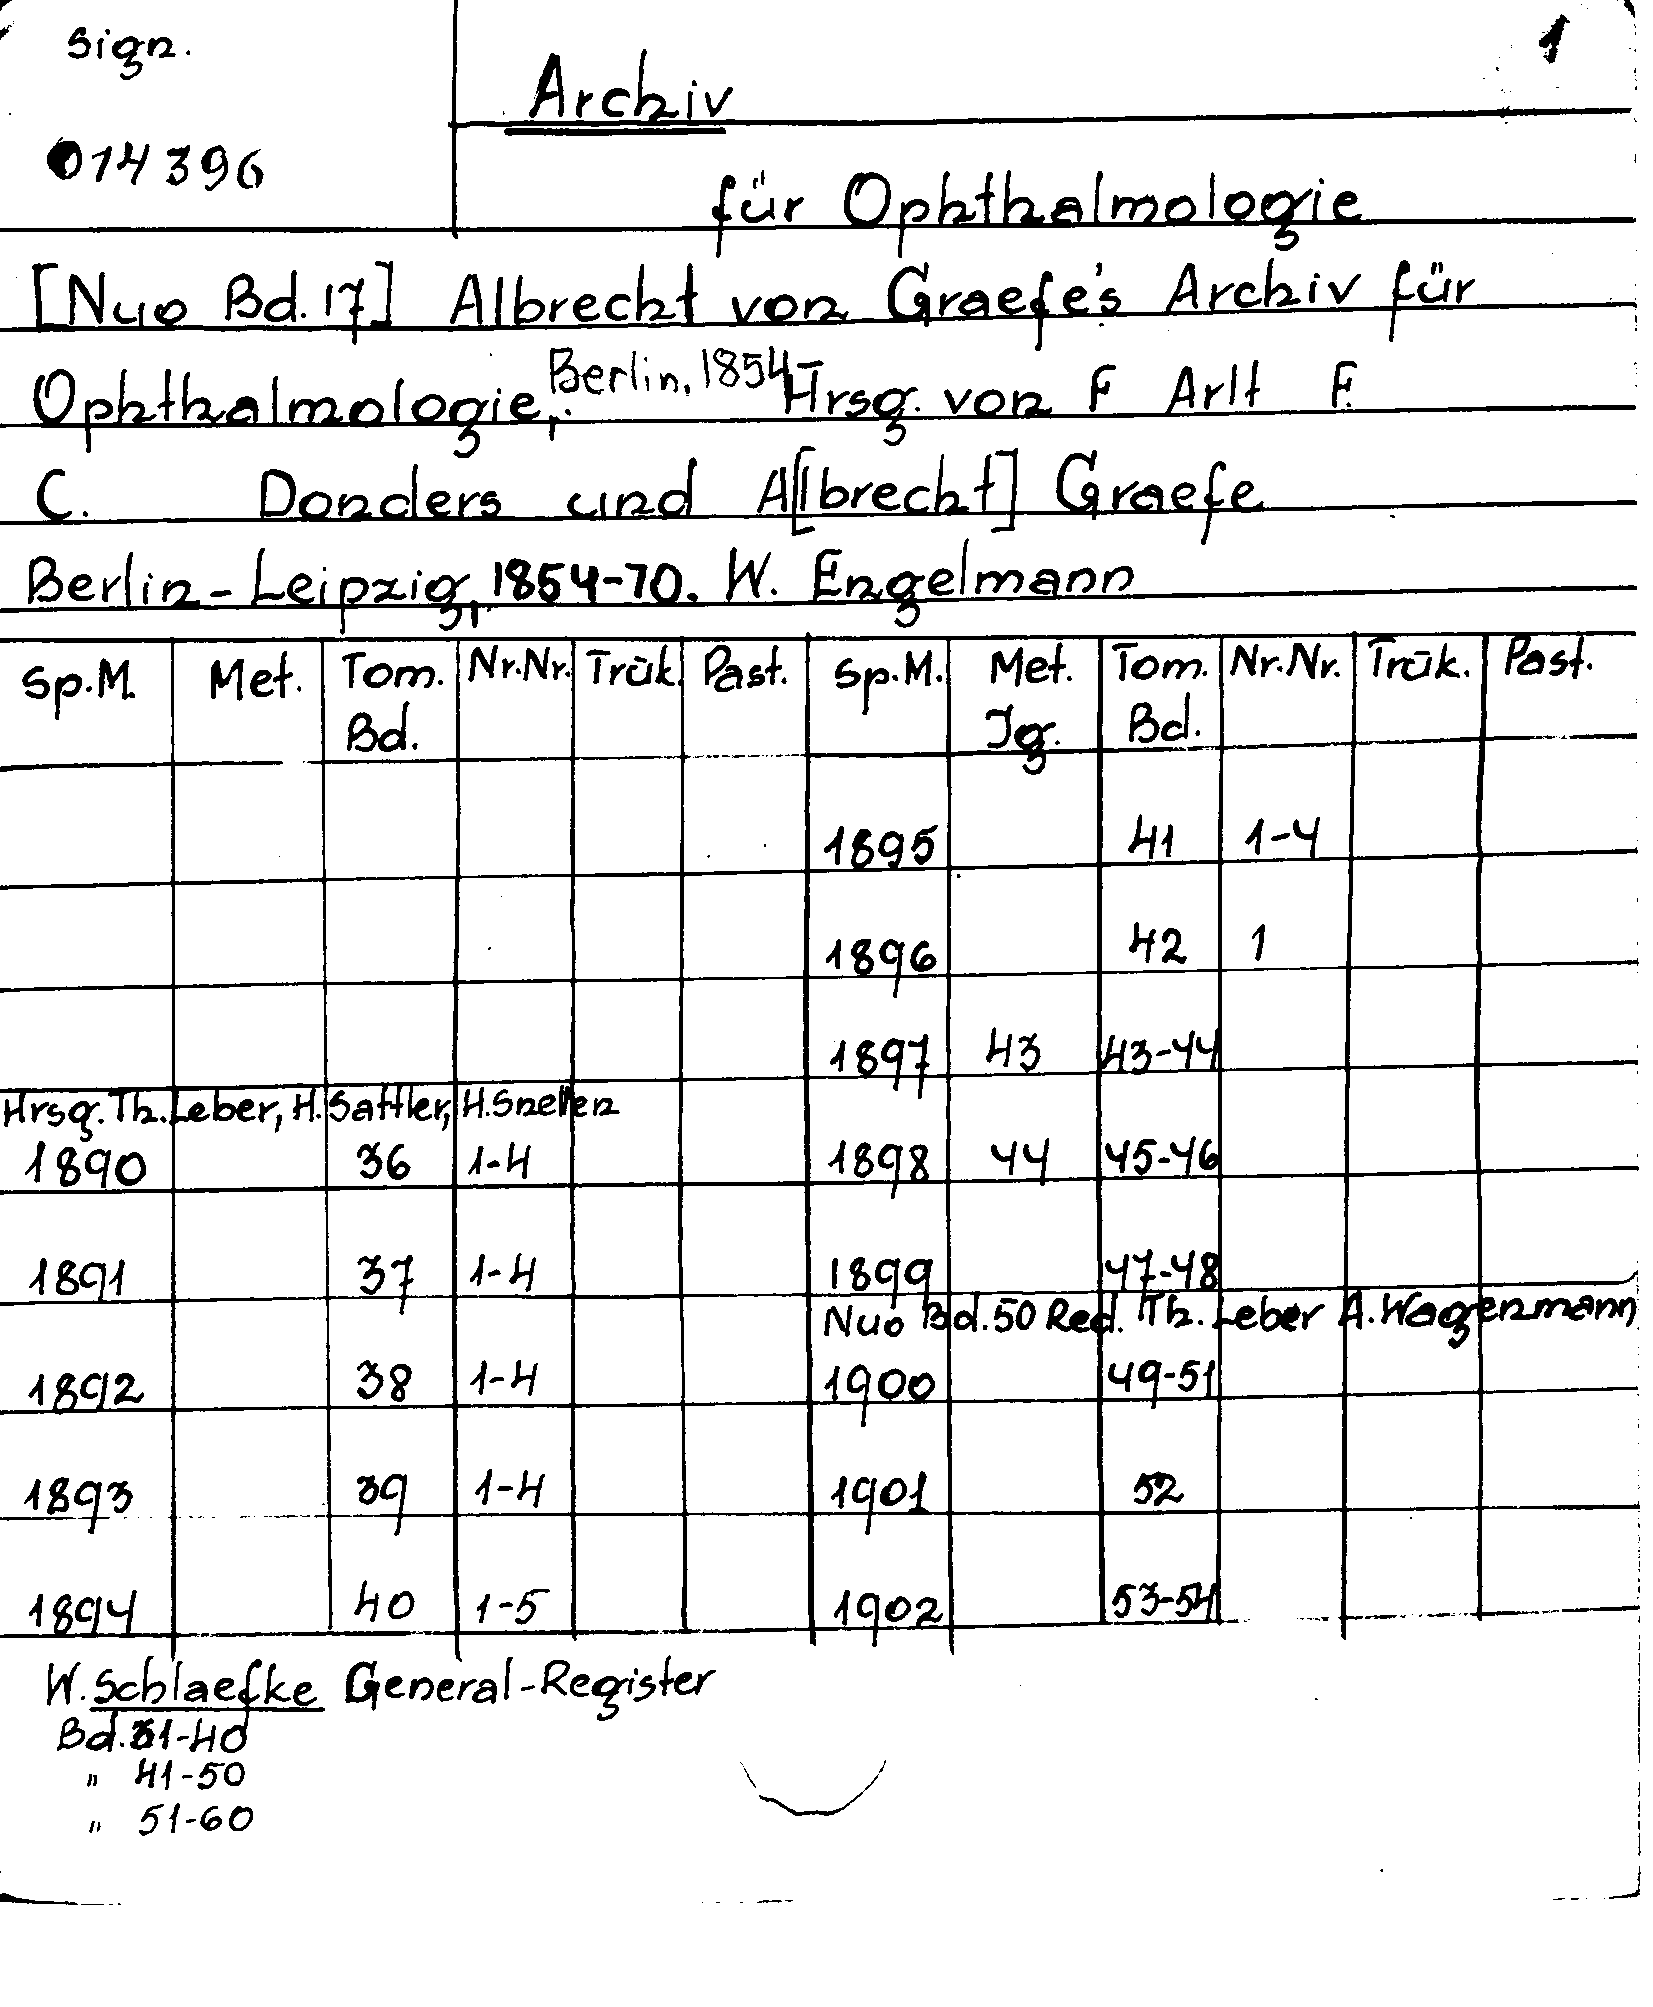 Sign.
1
Archiv
014396
für Ophthalmologie
[Nuo Bd. 17] Albrecht von Graefe's Archiv für
Ophthalmologie, Berlin, 1854 Hrsg. von F Arlt F.
C. Donders und A[lbrecht] Graefe
Berlin-Leipzig, 1854-70. W. Engelmann
Sp.M. Met. Tom. Nr.Nr. Trūk. Past. Sp.M. Met. Tom. Nr.Nr. Trūk. Past.
Bd. Jg. Bd.
1895 41 1-4
1896 42 1
1897 43 43-44
Hrsg. Th. Leber, H. Sattler, H. Snellen
1890 36 1-4 1898 44 45-46
1891 37 1-4 1899 47-48
Nuo Bd. 50 Red. Th. Leber A. Wagenmann
1892 38 1-4 1900 49-51
1893 39 1-4 1901 52
1894 40 1-5 1902 53-54
W. Schlaefke General-Register
Bd. 31-40
" 41-50
" 51-60